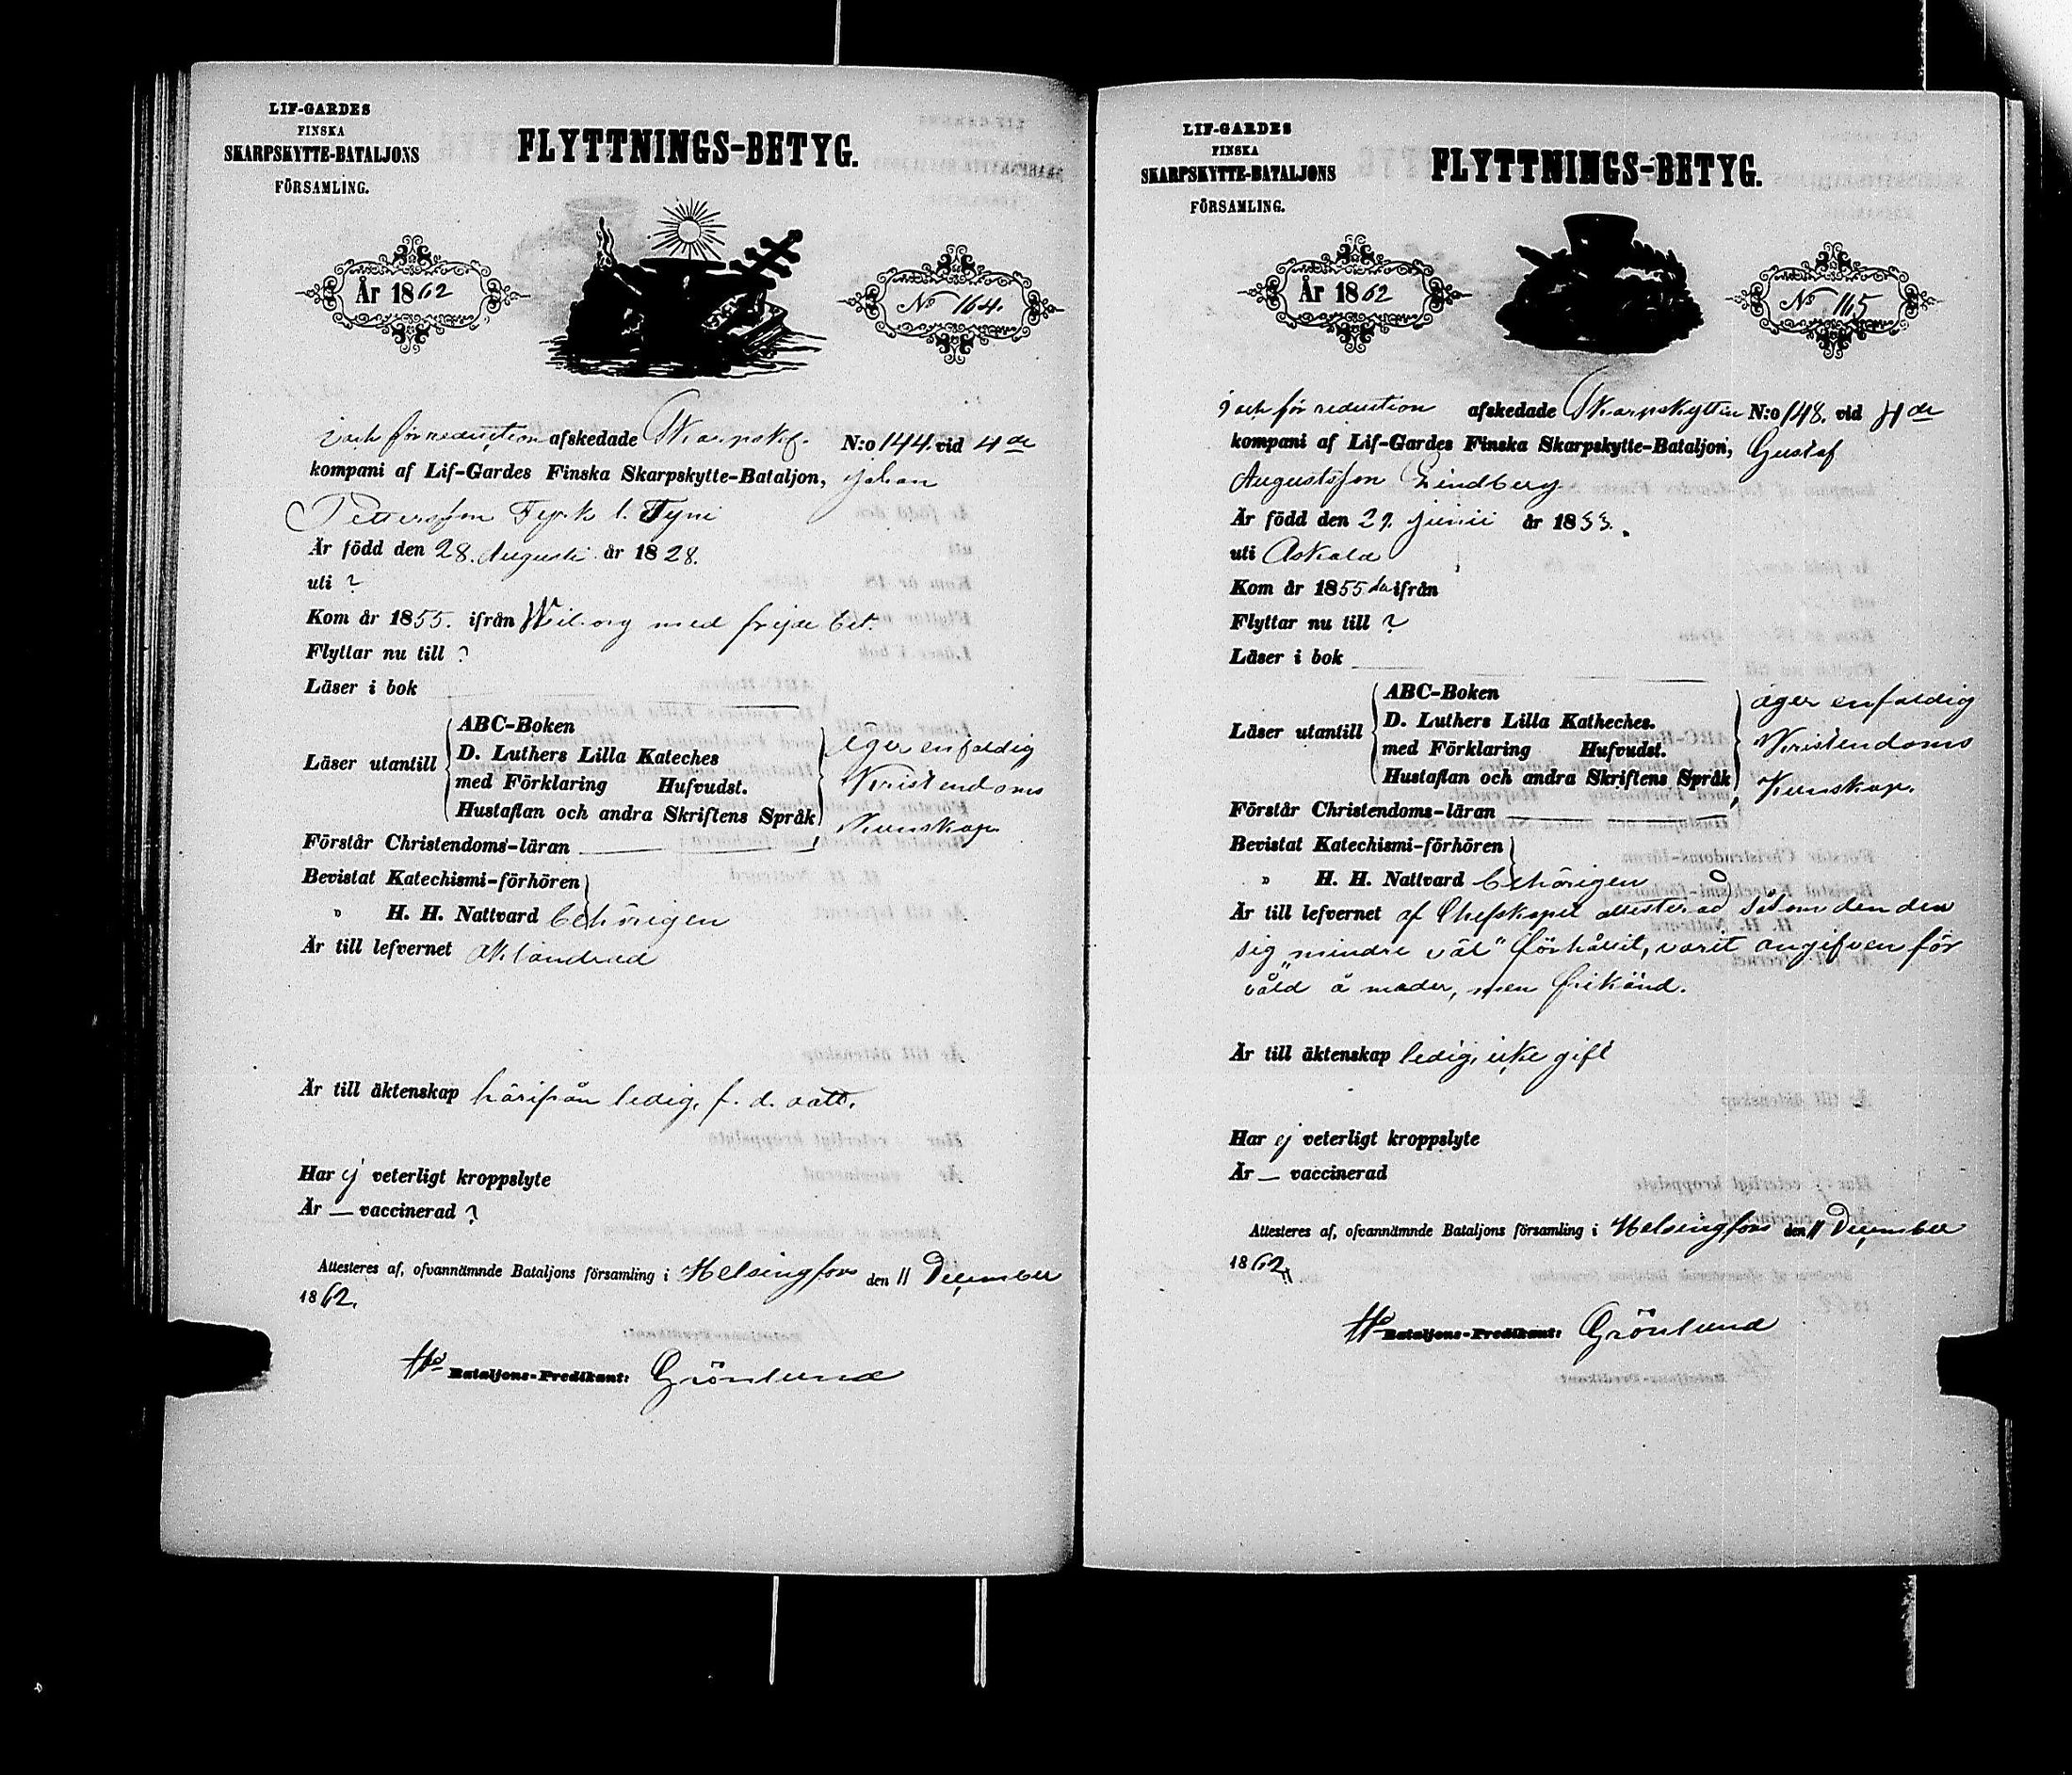 LIF-GARDES
FINSKA
SKARPSKYTTE-BATALJONS
FÖRSAMLING.
FLYTTNINGS-BETYG.
År 1862
No 164.
i och för reduction afskedade Skarpskt. N:o 144. vid 4de
kompani af Lif-Gardes Finska Skarpskytte-Bataljon, Johan
Pettersson Tyrk l. Tyni
Är född den 28. Augusti år 1828.
uti ?
Kom år 1855. ifrån Wiborg med frejde bet.
Flyttar nu till ?
Läser i bok
Läser utantill
ABC-Boken
D. Luthers Lilla Kateches
med Förklaring Hufvudst.
Hustaflan och andra Skriftens Språk
äger enfaldig
Kristendoms
Kunskap
Förstår Christendoms-läran
Bevistat Katechismi-förhören
" H. H. Nattvard behörigen
Är till lefvernet oklandrad
Är till äktenskap härifrån ledig, f. d.
Har ej veterligt kroppslyte
Är — vaccinerad ?
Attesteras af, ofvannämnde Bataljons församling i Helsingfors den 11 December
1862.
Bataljons-Predikant: Grönlund
LIF-GARDES
FINSKA
SKARPSKYTTE-BATALJONS
FÖRSAMLING.
FLYTTNINGS-BETYG.
År 1862
No 165
i och för reduction afskedade Skarpskytten N:o 148. vid 4de
kompani af Lif-Gardes Finska Skarpskytte-Bataljon, Gustaf
Augustsson Lindberg
Är född den 29. Junii år 1833.
uti Askola
Kom år 1855 ifrån
Flyttar nu till ?
Läser i bok
Läser utantill
ABC-Boken
D. Luthers Lilla Katheches.
med Förklaring Hufvudst.
Hustaflan och andra Skriftens Språk
äger enfaldig
Kristendoms
Kunskap.
Förstår Christendoms-läran
Bevistat Katechismi-förhören
" H. H. Nattvard behörigen
Är till lefvernet af Chefskapet attesterad såsom den den
sig „mindre väl" förhållit, varit angifven för
våld å moder, men frikänd.
Är till äktenskap ledig, icke gift
Har ej veterligt kroppslyte
Är — vaccinerad
Attesteres af, ofvannämnde Bataljons församling i Helsingfors den 11 December
1862
Bataljons-Predikant: Grönlund